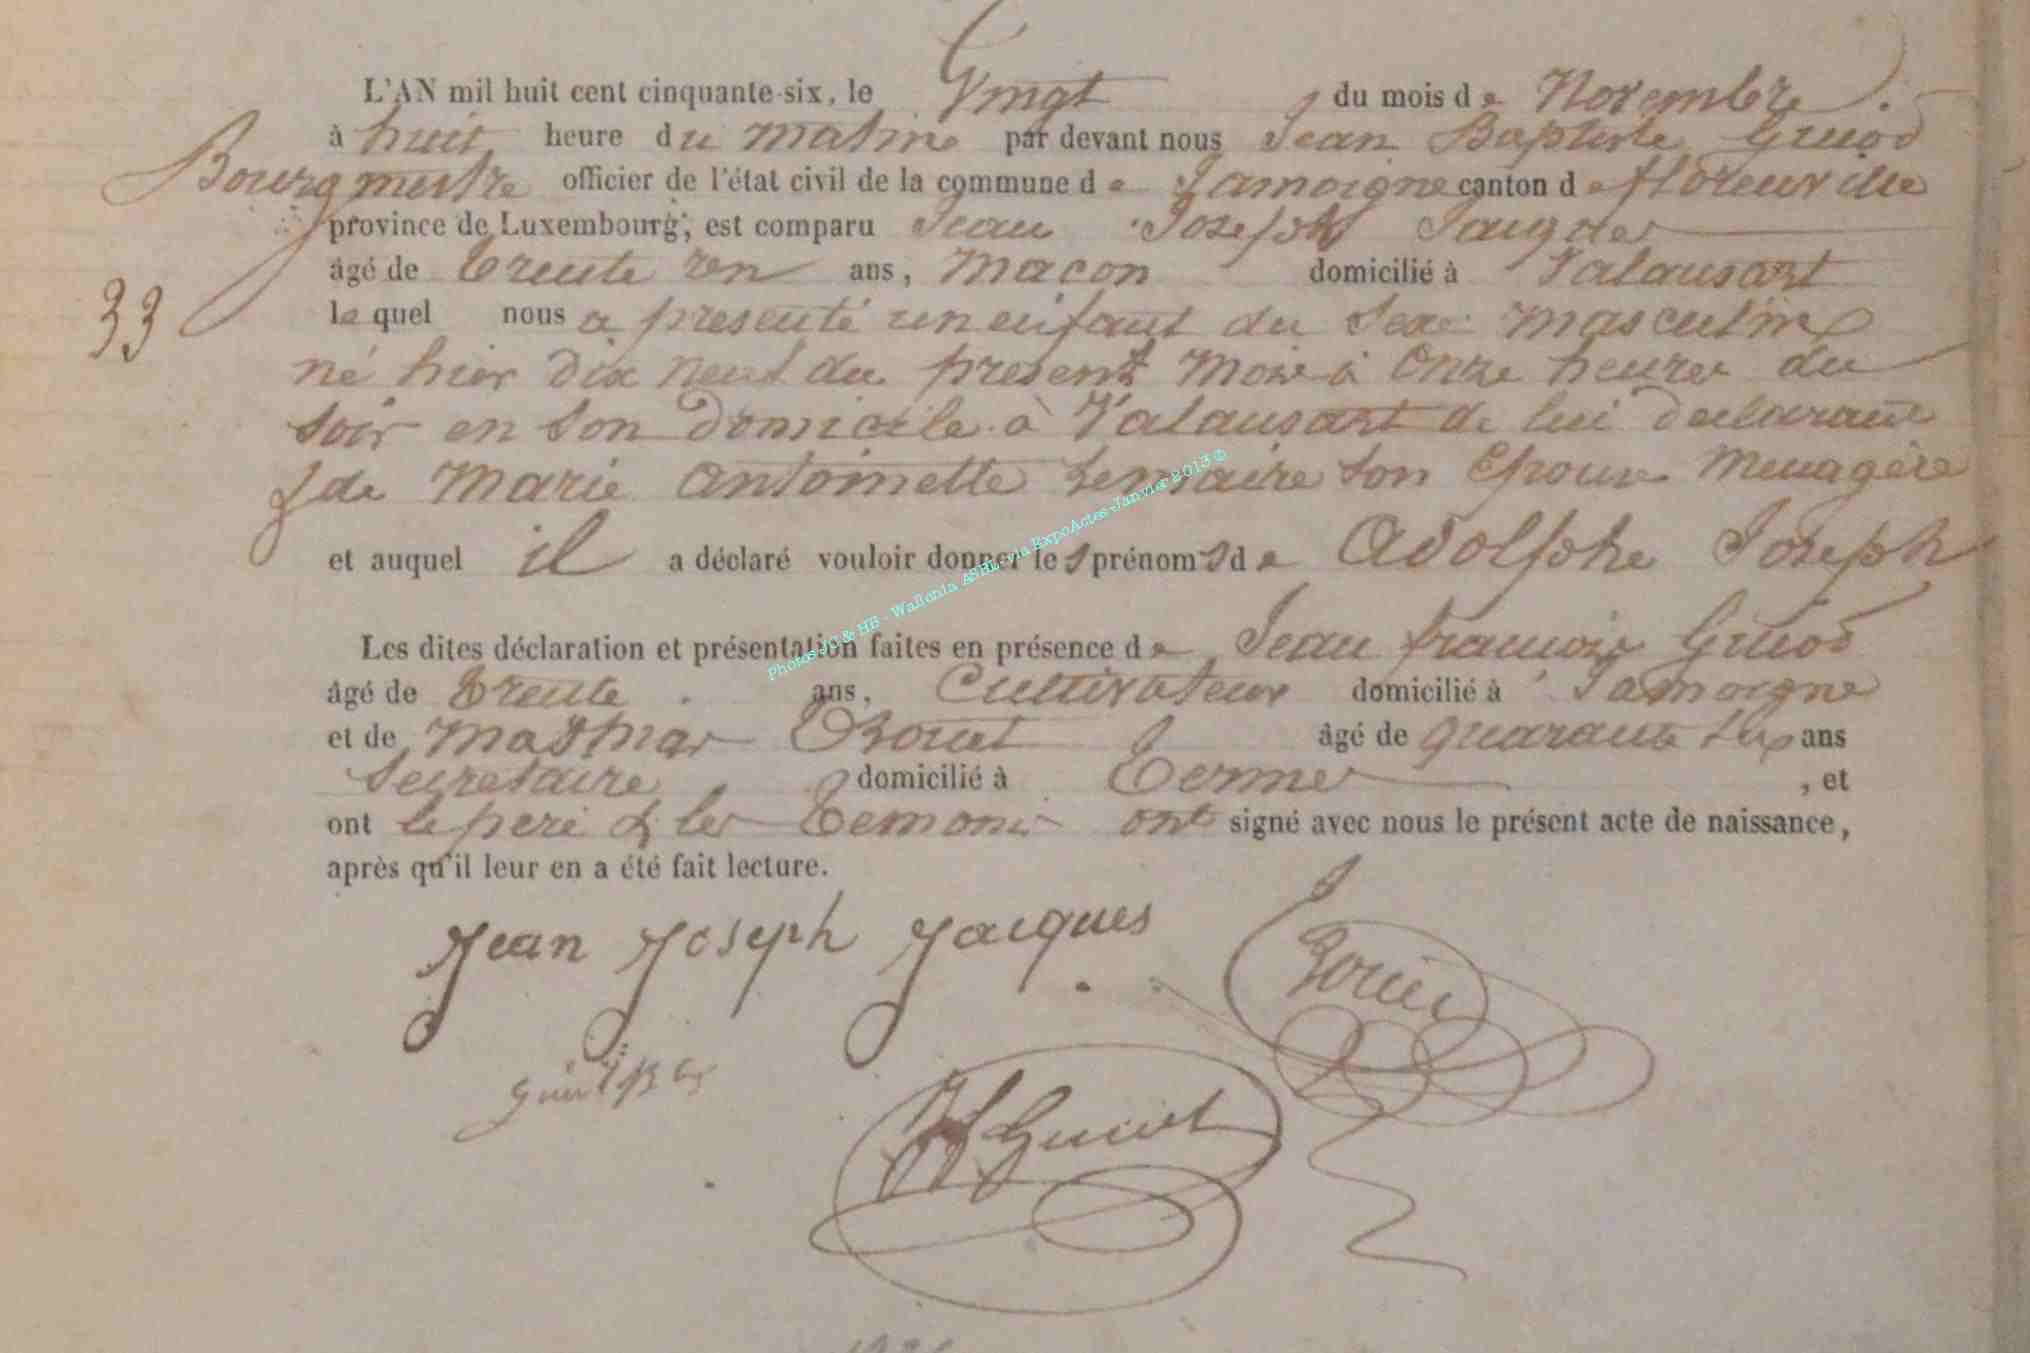 L'AN mil huit cent cinquante-six, le Vingt du mois de Novembre
à huit heure du matin par devant nous Jean Baptiste Guiod
Bourgmestre officier de l'état civil de la commune de Jamoigne canton de florenville
province de Luxembourg, est comparu Jean Joseph Jacques
âgé de trente un ans, Macon domicilié à Valansart
le quel nous a presenté un enfant du Sexe masculin
né hier dix neuf du present Mois à Onze heures du
soir en son domicile à Valansart de lui declarant
& de Marie antoinette Lemaire son Epouse Menagère
et auquel il a déclaré vouloir donner les prénoms de Adolphe Joseph
Les dites déclaration et présentation faites en présence de Jean francois Guiod
âgé de trente ans, Cultivateur domicilié à Jamoigne
et de âgé de quarante ans
Secretaire domicilié à Termes, et
ont le pere & les temoins ont signé avec nous le présent acte de naissance,
après qu'il leur en a été fait lecture.
33
Jean Joseph Jacques
Photos JC & HB - Wallonia ASBL via ExpoActes - Janvier 2013 ©